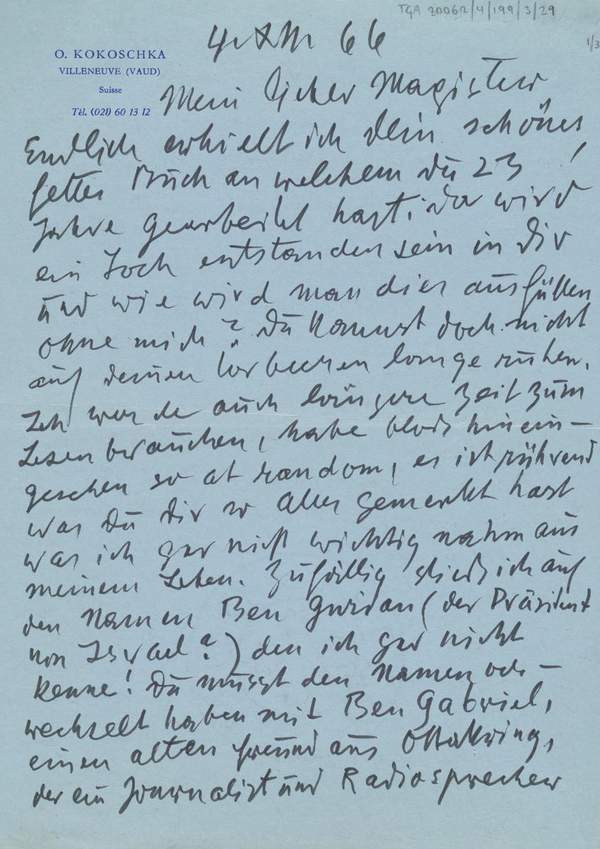 TGA 20062/4/199/3/29
1/3
O. KOKOSCHKA
VILLENEUVE (VAUD)
Suisse
Tél. (021) 60 13 12
66
Mein lieber Magister
Endlich erhielt ich dein schönes
fettes Buch an welchem du 23
Jahre gearbeitet hast! da wird
ein Loch entstanden sein in dir
und wie wird man dies ausfüllen
ohne mich? Du kannst doch nicht
auf deinen Lorbeeren lange ruhen.
Ich werde auch längere Zeit zum
Lesen brauchen, habe blods hinein-
gesehen so at random, es ist rührend
was Du dir so Alles gemerkt hast
was ich gar nicht wichtig nahm aus
meinem Leben. Zufällig stiess ich auf
den Namen Ben Gurion (der Präsident
von Israel?) den ich gar nicht
kenne! Du musst den Namen ver-
wechselt haben mit Ben Gabriel,
einen alten Freund aus Ottakring,
der ein Journalist und Radiosprecher